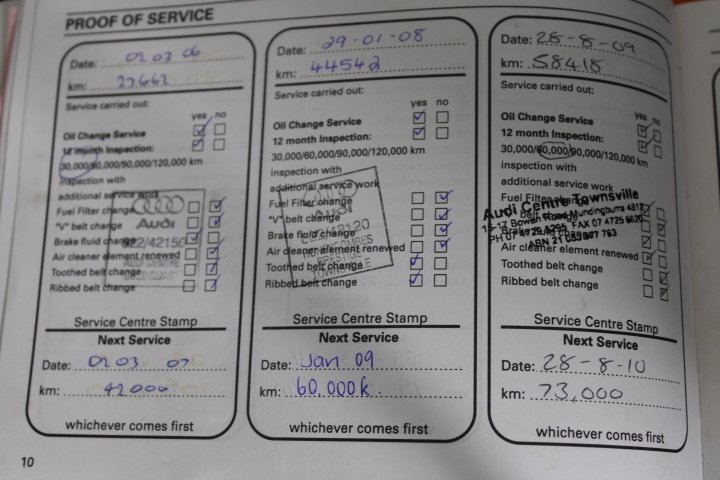 PROOF OF SERVICE
Date: 02 03 06
km: 27662
Service carried out:
yes no
Oil Change Service
12 month Inspection:
30,000/60,000/90,000/120,000 km
inspection with
additional service work
Fuel Filter change
"V" belt change
Brake fluid change
Air cleaner element renewed
Toothed belt change
Ribbed belt change
Audi
Service Centre Stamp
Next Service
Date: 02 03 07
km: 42000
whichever comes first
Date: 29-01-08
km: 44542
Service carried out:
yes no
Oil Change Service
12 month Inspection:
30,000/60,000/90,000/120,000 km
inspection with
additional service work
Fuel Filter change
"V" belt change
Brake fluid change
Air cleaner element renewed
Toothed belt change
Ribbed belt change
Audi
PRESTIGE
TOWNSVILLE
Service Centre Stamp
Next Service
Date: Jan 09
km: 60,000k.
whichever comes first
Date: 28-8-09
km: 58418
Service carried out:
yes no
Oil Change Service
12 month Inspection:
30,000/60,000/90,000/120,000 km
inspection with
additional service work
Fuel Filter change
Audi Centre Townsville
belt change
15-17 Bowen Road Mundingburra 4812
PH 07 4729 5295 FAX 07 4725 6620
Air cleaner element renewed
Toothed belt change
Ribbed belt change
Service Centre Stamp
Next Service
Date: 28-8-10
km: 73,000
whichever comes first
10